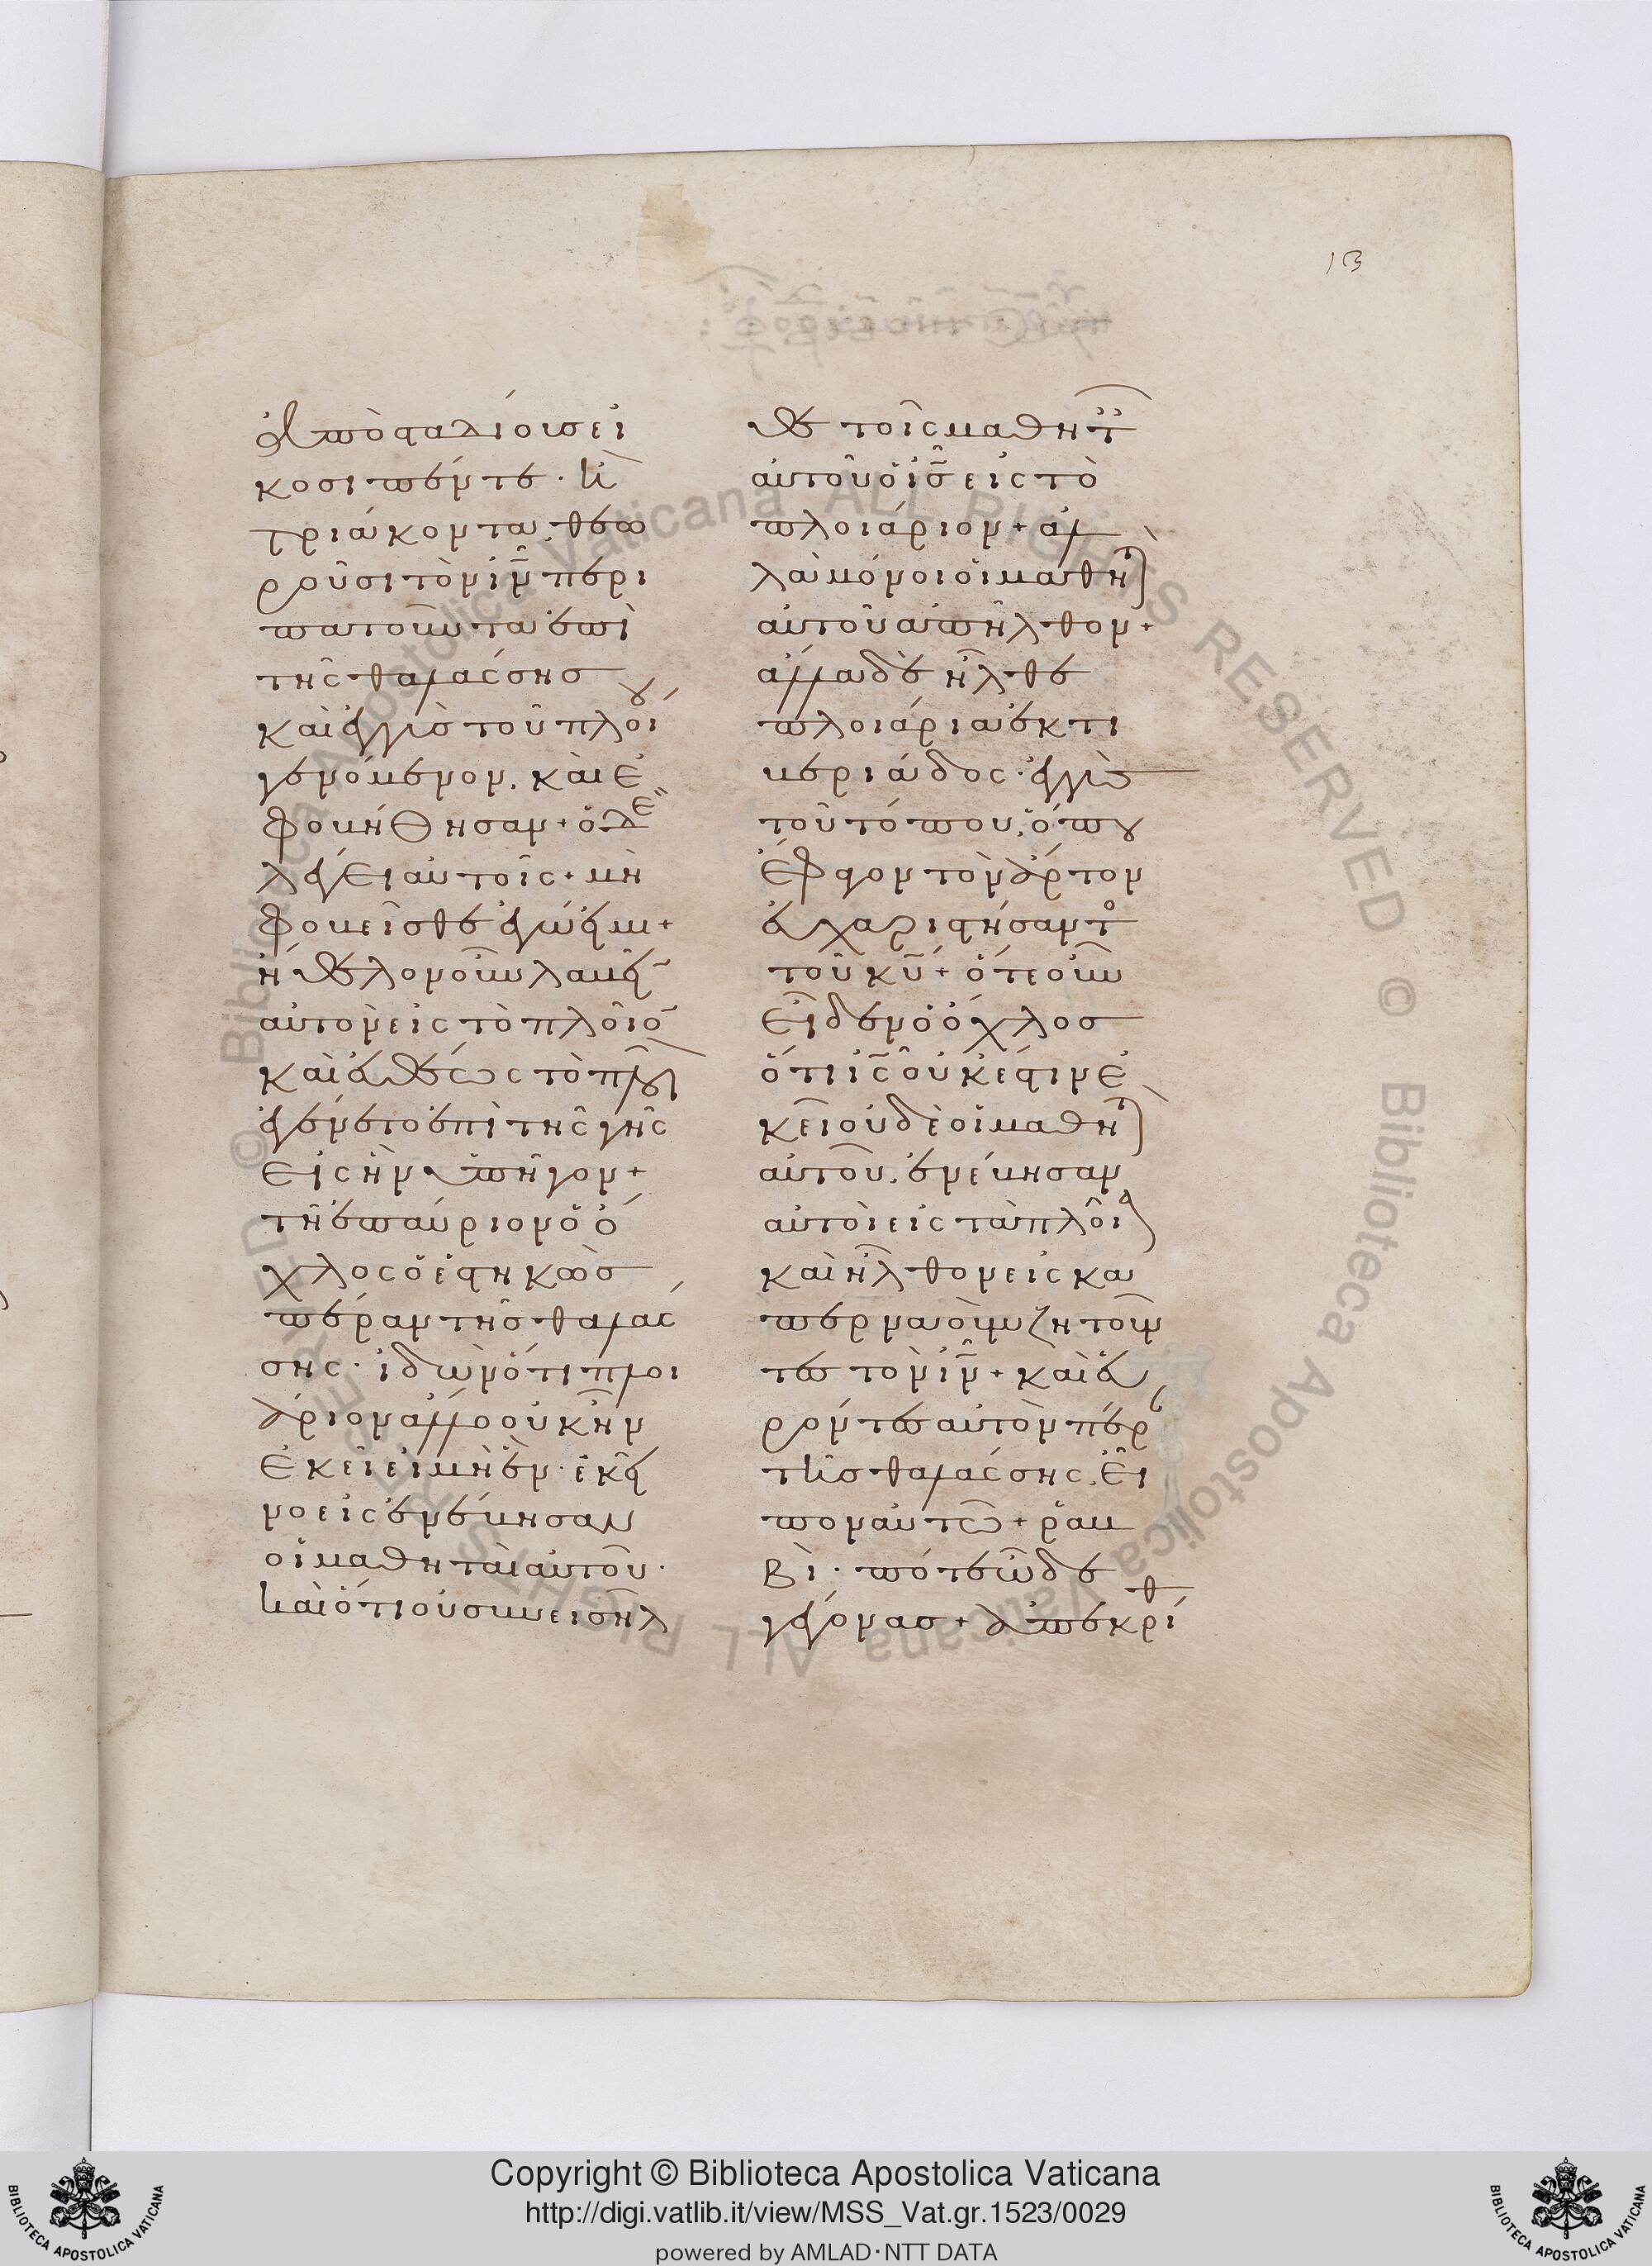 13
ὡς ἀπὸ σταδίους εἰ
κοσι πέντε · ἢ
τριάκοντα, θεω
ροῦσι τὸν ἰν̅ περι
πατοῦντα ἐπὶ
τῆς θαλάσσης
καὶ ἐγγὺς τοῦ πλοίου
γενόμενον, καὶ ἐ
φοβήθησαν + ὁ δὲ
λέγει αὐτοῖς + μὴ
φοβεῖσθε ἐγώ εἰμι +
ἤθελον οὖν λαβεῖν
αὐτὸν εἰς τὸ πλοῖο̅
καὶ εὐθέως τὸ πλοῖ
ἐγένετο ἐπὶ τῆς γῆς
εἰς ἣν ὑπῆγον +
τῇ ἐπαύριον ὁ ὄ
χλος ὁ ἑστηκὼς
πέραν τῆς θαλάσ
σης · ἰδὼν ὅτι πλοι
άριον ἄλλο οὐκ ἦν
ἐκεῖ εἰ μὴ ἓν · ἐκεῖ
νο εἰς ὃ ἐνέβησαν
οἱ μαθηταὶ αὐτοῦ ·
καὶ ὅτι οὐ συνεισῆλ
θε τοῖς μαθητ
αὐτοῦ ὁ ις̅ εἰς τὸ
πλοιάριον + ἀλ
λὰ μόνοι οἱ μαθητ
αὐτοῦ ἀπῆλθον +
ἄλλα δὲ ἦλθε
πλοιάρια ἐκ τι
βεριάδος · ἐγγὺς
τοῦ τόπου, ὅπου
ἔφαγον τὸν ἄρτον
εὐχαριστήσαντο
τοῦ κυ̅ + ὅτε οὖν
εἶδεν ὁ ὄχλος
ὅτι ις̅ οὐκ ἔστιν ἐ
κεῖ οὐδὲ οἱ μαθητ
αὐτοῦ, ἐνέβησαν
αὐτοὶ εἰς τὰ πλοῖα
καὶ ἦλθον εἰς κα
περναοὺμ ζητοῦν
τες τὸν ιν̅ + καὶ εὑ
ρόντες αὐτὸν πέρ
τῆς θαλάσσης, εἶ
πον αὐτῷ + ῥαβ
βί · πότε ὧδε
γέγονας + ἀπεκρίθ
Copyright © Biblioteca Apostolica Vaticana
http://digi.vatlib.it/view/MSS_Vat.gr.1523/0029
powered by AMLAD·NTT DATA